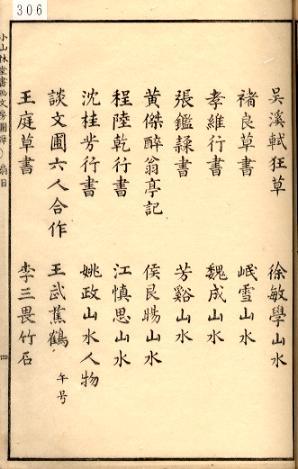 306
吳溪軾狂草
徐敏學山水
褚良草書
岷雪山水
李維行書
魏成山水
張鑑隸書
芳谿山水
黃傑醉翁亭記
侯艮暘山水
程陸乾行書
江慎思山水
沈桂芳行書
姚政山水人物
談文圃六人合作
王武蕉鶴 午号
王庭草書
李三畏竹石
小山林堂書画文房圖錄
四